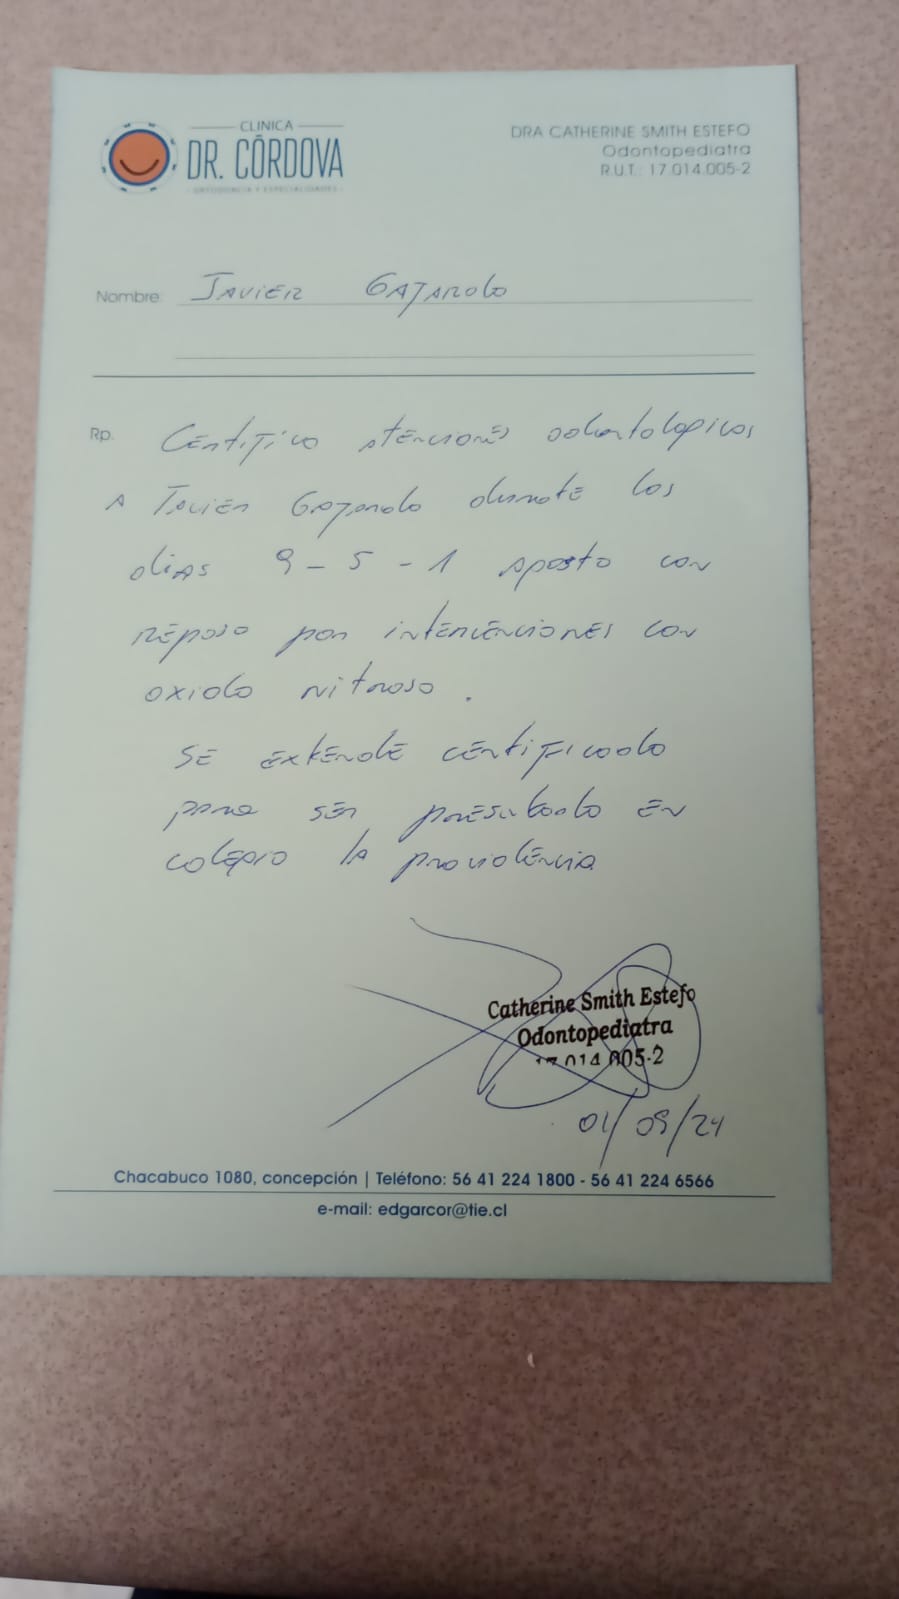 CLINICA
DR. CÓRDOVA
ORTODONCIA Y ESPECIALIDADES
DRA CATHERINE SMITH ESTEFO
Odontopediatra
R.U.T.: 17.014.005-2
Nombre: Javier Gajardo
Rp. Certifico atenciones odontologicas
a Javier Gajardo durate los
dias 9 - 5 - 1 agosto con
reposo por intervenciones con
oxido nitroso.
Se extende certificado
para ser presentado en
colegio la providencia
Catherine Smith Estefo
Odontopediatra
17 014 005-2
01/09/24
Chacabuco 1080, concepción | Teléfono: 56 41 224 1800 - 56 41 224 6566
e-mail: edgarcor@tie.cl